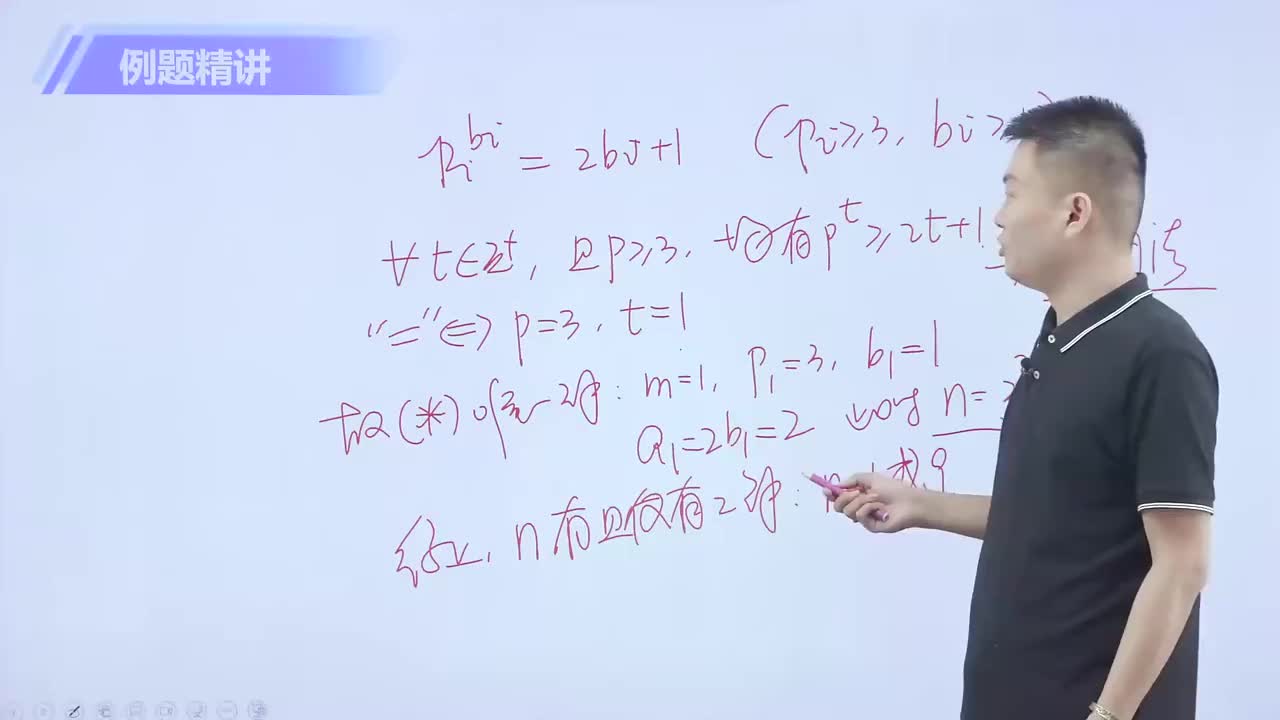 例题精讲
pᵢ^bᵢ = 2bᵢ+1 (pᵢ≥3, bᵢ≥
∀ t∈Z⁺, 且p≥3, 均有p^t ≥ 2t+1
“=”⇔ p=3, t=1
故(*)只有一解: m=1, p₁=3, b₁=1
a₁=2b₁=2 此时 n=3
综上, n有且仅有2解: 或9